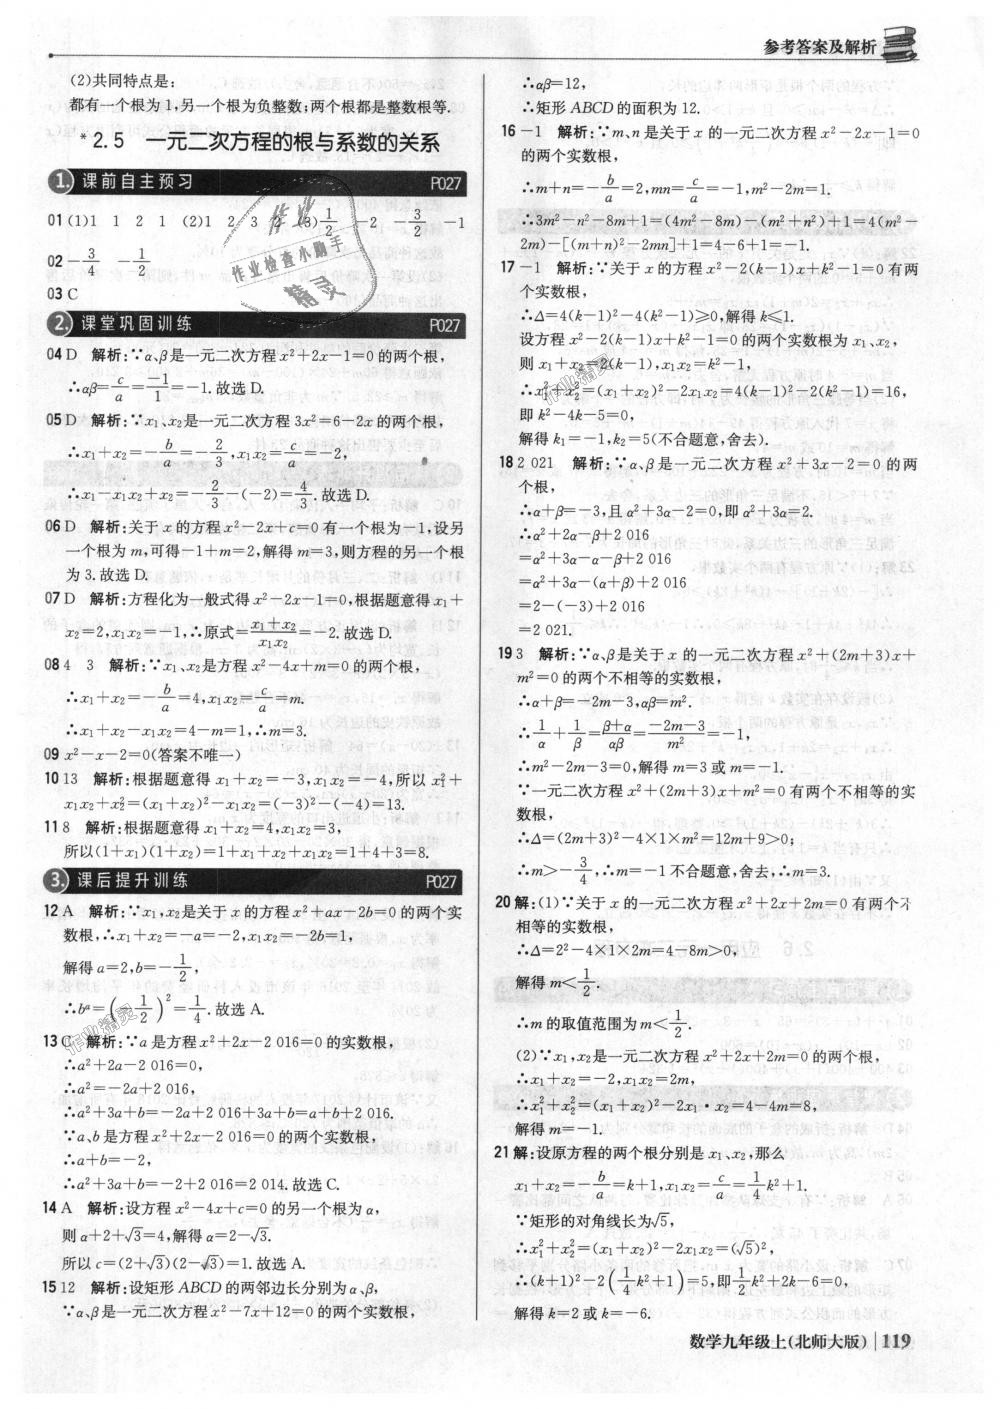 参考答案及解析
(2)共同特点是:
都有一个根为1,另一个根为负整数;两个根都是整数根等.
*2.5 一元二次方程的根与系数的关系
1. 课前自主预习 P027
01 (1)1 1 2 1 (2)1 2 3 2 (3)1/2 -2 -3/2 -1
02 -3/4 -1/4
03 C
2. 课堂巩固训练 P027
04 D 解析:∵α、β是一元二次方程x²+2x-1=0的两个根,
∴αβ=c/a=-1/1=-1.故选D.
05 D 解析:∵x₁、x₂是一元二次方程3x²=6-2x的两个根,
∴x₁+x₂=-b/a=-2/3,x₁x₂=c/a=-2,
∴x₁-x₁x₂+x₂=-2/3-(-2)=4/3.故选D.
06 D 解析:关于x的方程x²-2x+c=0有一个根为-1,设另
一个根为m,可得-1+m=2,解得m=3,则方程的另一个根
为3.故选D.
07 D 解析:方程化为一般式得x²-2x-1=0,根据题意得x₁+
x₂=2,x₁x₂=-1,∴原式=(x₁+x₂)/(x₁x₂)=-2.故选D.
08 4 3 解析:∵x₁、x₂是方程x²-4x+m=0的两个根,
∴x₁+x₂=-b/a=4,x₁x₂=c/a=m.
∴x₁+x₂-x₁x₂=4-m=1,∴m=3.
09 x²-x-2=0(答案不唯一)
10 13 解析:根据题意得x₁+x₂=-3,x₁x₂=-4,所以x₁²+
x₁x₂+x₂²=(x₁+x₂)²-x₁x₂=(-3)²-(-4)=13.
11 8 解析:根据题意得x₁+x₂=4,x₁x₂=3,
所以(1+x₁)(1+x₂)=1+x₁+x₂+x₁x₂=1+4+3=8.
3. 课后提升训练 P027
12 A 解析:∵x₁,x₂是关于x的方程x²+ax-2b=0的两个实
数根,∴x₁+x₂=-a=-2,x₁x₂=-2b=1,
解得a=2,b=-1/2,
∴bᵃ=(-1/2)²=1/4.故选A.
13 C 解析:∵a是方程x²+2x-2 016=0的实数根,
∴a²+2a-2 016=0,
∴a²=-2a+2 016,
∴a²+3a+b=-2a+2 016+3a+b=a+b+2 016.
∵a、b是方程x²+2x-2 016=0的两个实数根,
∴a+b=-2,
∴a²+3a+b=-2+2 016=2 014.故选C.
14 A 解析:设方程x²-4x+c=0的另一个根为α,
则α+2+√3=4,解得α=2-√3.
所以c=(2+√3)(2-√3)=1.故选A.
15 12 解析:设矩形ABCD的两邻边长分别为α、β,
∵α、β是一元二次方程x²-7x+12=0的两个实数根,
∴αβ=12,
∴矩形ABCD的面积为12.
16 -1 解析:∵m、n是关于x的一元二次方程x²-2x-1=0
的两个实数根,
∴m+n=-b/a=2,mn=c/a=-1,m²-2m=1.
∴3m²-n²-8m+1=(4m²-8m)-(m²+n²)+1=4(m²-
2m)-[(m+n)²-2mn]+1=4-6+1=-1.
17 -1 解析:∵关于x的方程x²-2(k-1)x+k²-1=0有两
个实数根,
∴Δ=4(k-1)²-4(k²-1)≥0,解得k≤1.
设方程x²-2(k-1)x+k²-1=0的两个实数根为x₁、x₂,
则x₁+x₂=2(k-1),x₁x₂=k²-1,
∴x₁²+x₂²=(x₁+x₂)²-2x₁x₂=4(k-1)²-2(k²-1)=16,
即k²-4k-5=0,
解得k₁=-1,k₂=5(不合题意,舍去).
18 2 021 解析:∵α、β是一元二次方程x²+3x-2=0的两
个根,
∴α+β=-3,且α²+3α-2=0,即α²+3α=2.
∴α²+2α-β+2 016
=α²+3α-α-β+2 016
=α²+3α-(α+β)+2 016
=2-(-3)+2 016
=2 021.
19 3 解析:∵α、β是关于x的一元二次方程x²+(2m+3)x+
m²=0的两个不相等的实数根,
∴α+β=-2m-3,αβ=m².
∴1/α+1/β=(β+α)/αβ=(-2m-3)/m²=-1,
∴m²-2m-3=0,解得m=3或m=-1.
∵一元二次方程x²+(2m+3)x+m²=0有两个不相等的实
数根,
∴Δ=(2m+3)²-4×1×m²=12m+9>0;
∴m>-3/4,∴m=-1不合题意,舍去,∴m=3.
20 解:(1)∵关于x的一元二次方程x²+2x+2m=0有两个不
相等的实数根,
∴Δ=2²-4×1×2m=4-8m>0,
解得m<1/2.
∴m的取值范围为m<1/2.
(2)∵x₁,x₂是一元二次方程x²+2x+2m=0的两个根,
∴x₁+x₂=-2,x₁x₂=2m,
∴x₁²+x₂²=(x₁+x₂)²-2x₁·x₂=4-4m=8,
解得m=-1.
21 解:设原方程的两个根分别是x₁、x₂,那么
x₁+x₂=-b/a=k+1,x₁x₂=c/a=1/4k²+1.
∵矩形的对角线长为√5,
∴x₁²+x₂²=(x₁+x₂)²-2x₁x₂=(√5)²,
∴(k+1)²-2(1/4k²+1)=5,即1/2k²+2k-6=0,
解得k=2或k=-6.
数学九年级上(北师大版) 119
作业
作业检查小助手
精灵
作业精灵
作业精灵